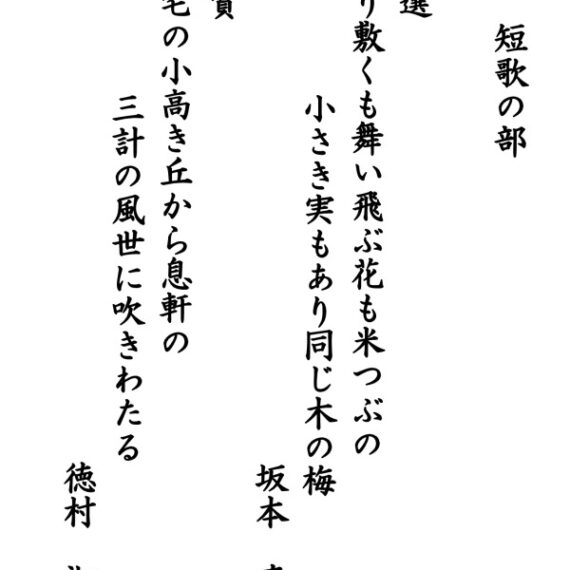 短歌の部
選
り敷くも舞い飛ぶ花も米つぶの
小さき実もあり同じ木の梅
坂本
賞
宅の小高き丘から息軒の
三計の風世に吹きわたる
徳村